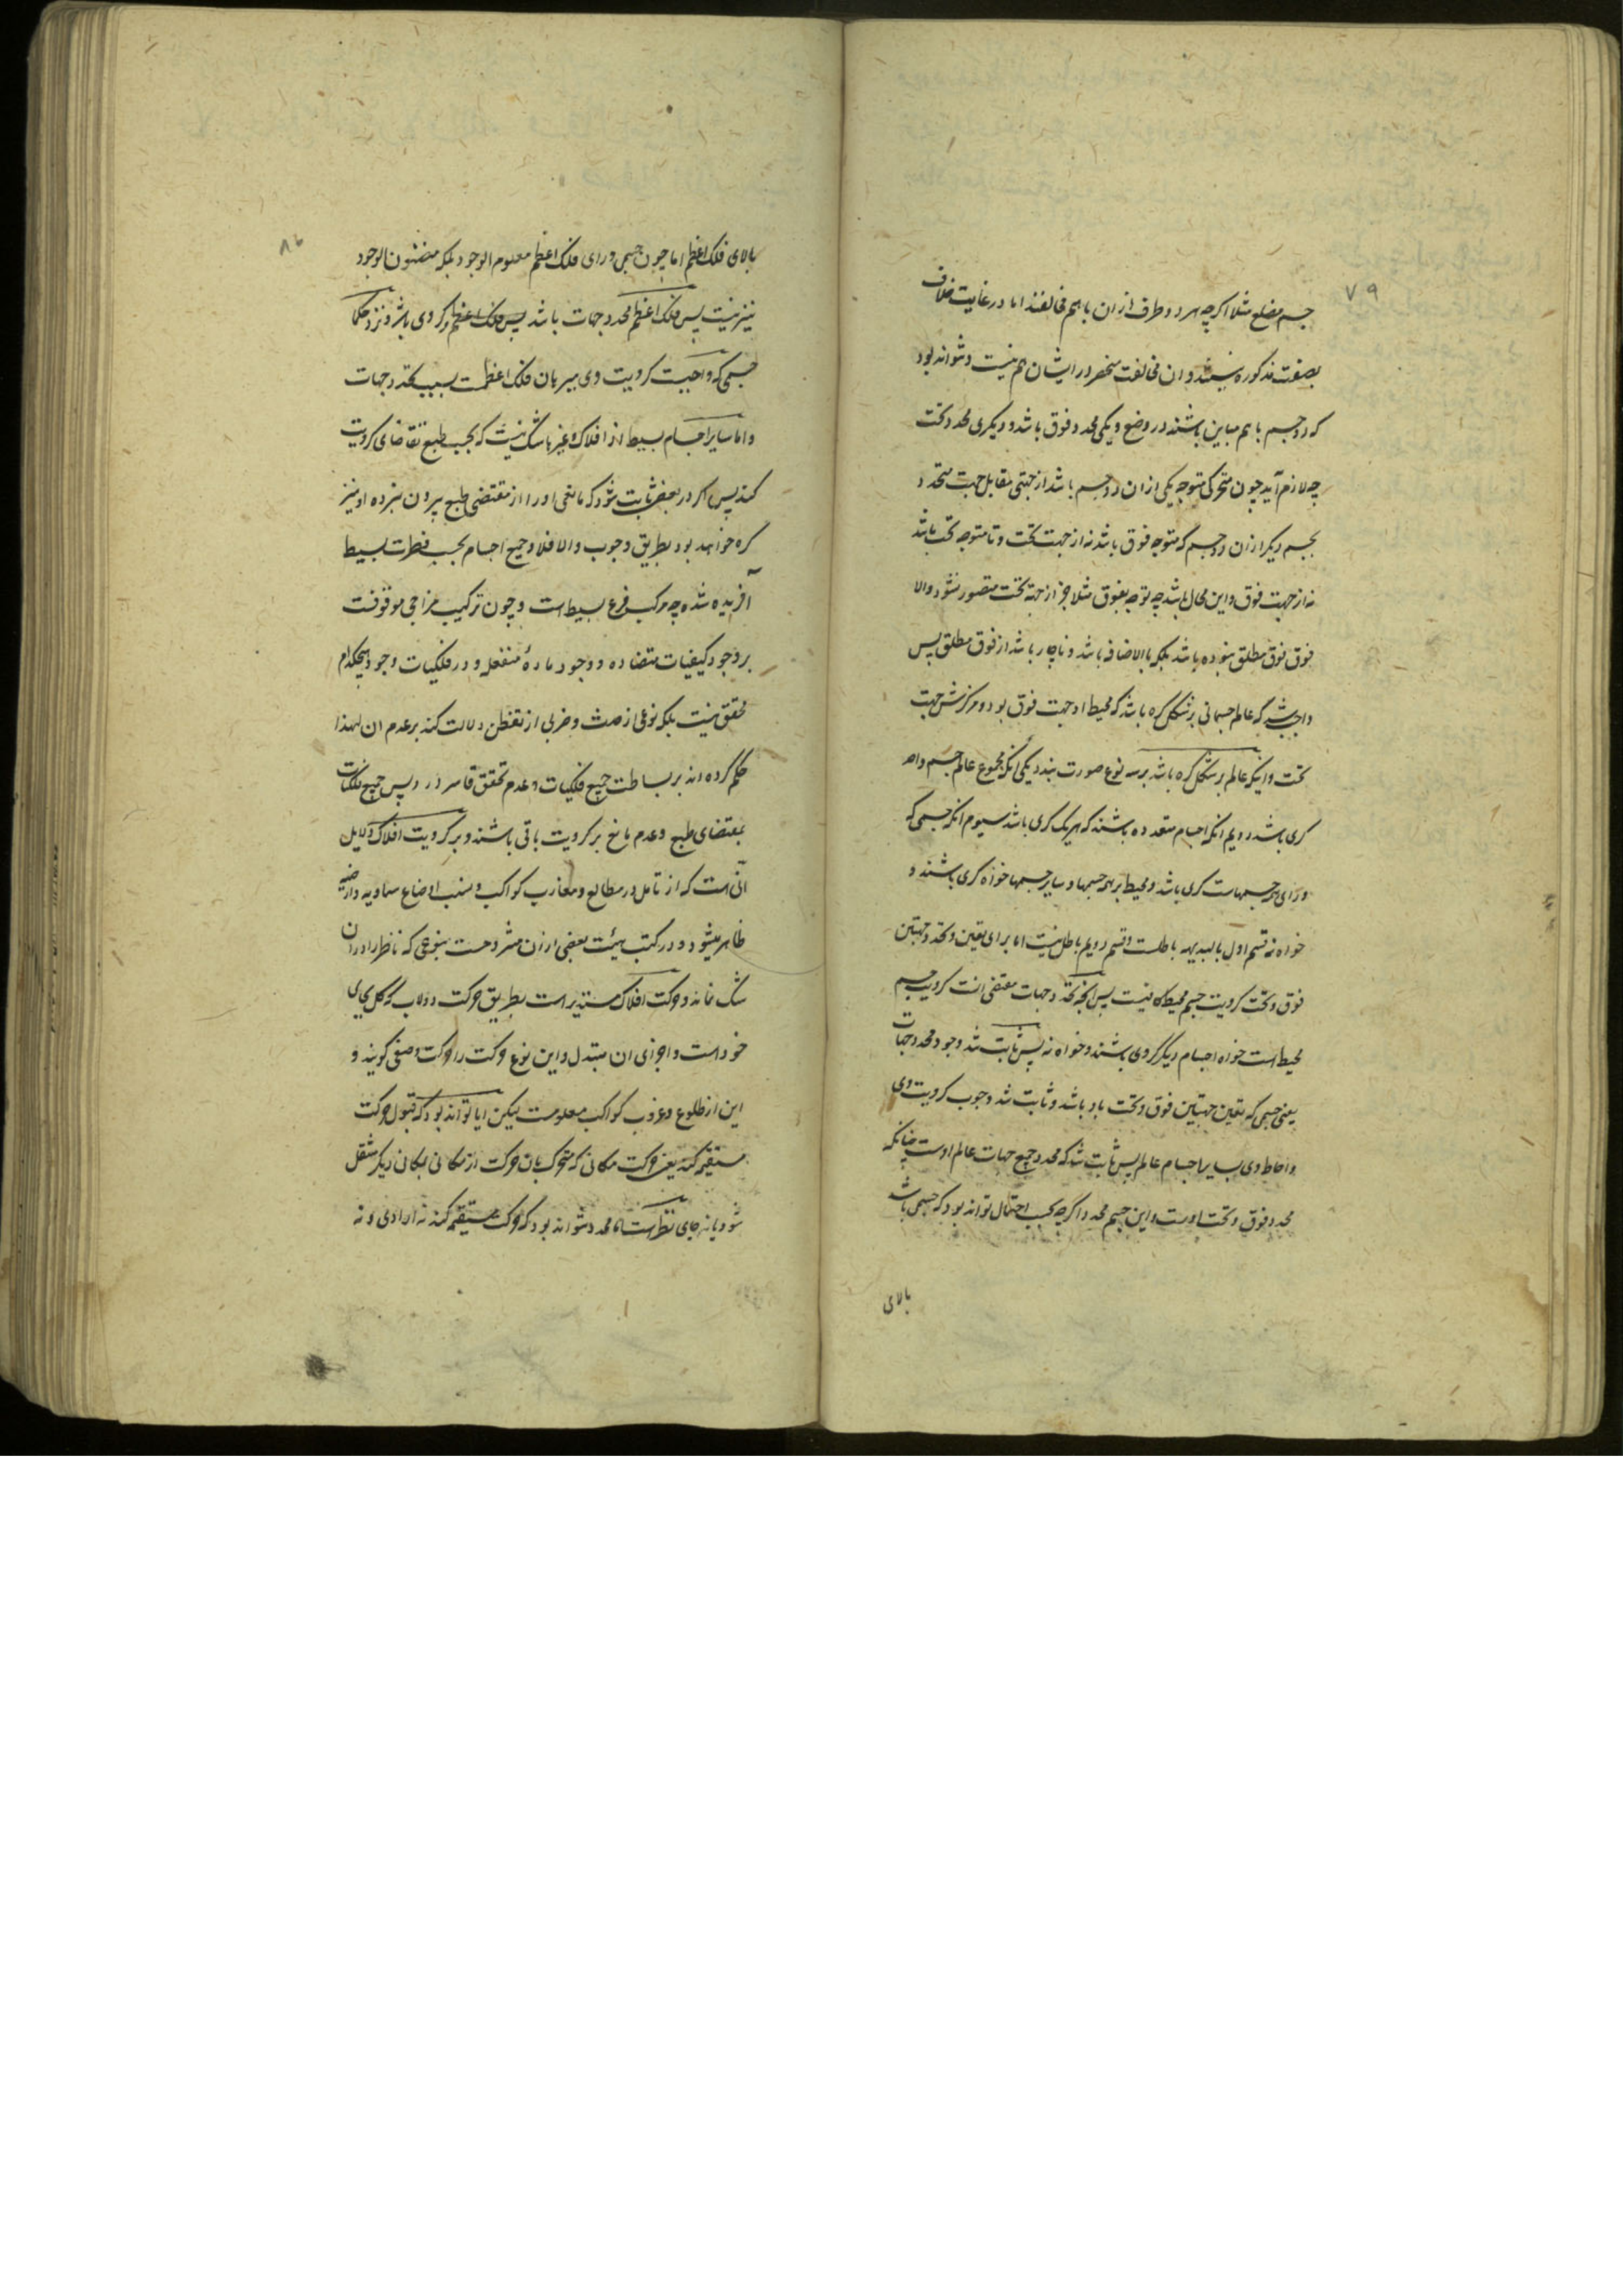 ۷۹
جسم مضلع مثلا اگرچه هر دو طرف ازان باهم مخالفند اما در غایت خلاف
بصفت مذکوره نیستند و ان مخالفت منحصر در ایشان هم نیست و نتواند بود
که دو جسم باهم مباین باشند در وضع و یکی محدد فوق باشد و دیگری محدد تحت
چه لازم آید چون متحرکی متوجه یکی ازان دو جسم باشد از جهتی مقابل جهت متحدد
بجسم دیگر ازان دو جسم که متوجه فوق باشد نه از جهت تحت و تا متوجه تحت باشد
نه از جهت فوق و این محال باشد چه توجه بفوق مثلا جز از جهة تحت متصور نشود و الا
فوق فوق مطلق نبوده باشد بلکه بالاضافه باشد و ناچار باشد از فوق مطلق پس
واجب شد که عالم جسمانی بر شکل کره باشد که محیط او جهت فوق بود و مرکزش جهت
تحت و اینکه عالم بر شکل کره باشد بر سه نوع صورت بندد یکی انکه مجموع عالم جسم واحد
کری باشد دویم انکه اجسام متعدده باشند که هر یک کری باشد سیوم انکه جسمی که
ورای همه جسمهاست کری باشد و محیط بر همه جسمها و سایر جسمها خواه کری باشند و
خواه نه قسم اول بالبدیهه باطلست و قسم دویم باطل نیست اما برای تعین و تحدد جهتین
فوق و تحت کرویت جسم محیط کافیست پس انچه تحدد جهات مقتضی انست کرویت جسم
محیط است خواه اجسام دیگر کروی باشند و خواه نه پس ثابت شد وجود محدد جهات
یعنی جسمی که تعین جهتین فوق و تحت باو باشد و ثابت شد وجوب کرویت وی
و احاطه وی بسایر اجسام عالم پس ثابت شد که محدد جمیع جهات عالم اوست چنانکه
محدد فوق و تحت اوست و این جسم محدد اگرچه بحسب احتمال تواند بود که جسمی باشد
بالای
۸۰
بالای فلک اعظم اما چون جسمی ورای فلک اعظم معلوم الوجود بلکه مظنون الوجود
نیز نیست پس فلک اعظم محدد جهات باشد پس فلک اعظم کروی باشد و نزد حکما
جسمی که واجبست کرویت وی همان فلک اعظمست بسبب تحدد جهات
و اما سایر اجسام بسیط از افلاک و غیرها شک نیست که بحسب طبع تقاضای کرویت
کنند پس اگر در بعضی ثابت شود که مانعی او را از مقتضی طبع بیرون نبرده او نیز
کره خواهد بود بطریق وجوب و الا فلا و جمیع اجسام بحسب فطرت بسیط
آفریده شده چه مرکب فرع بسیط است و چون ترکیب مزاجی موقوفست
بر وجود کیفیات متضاده و وجود مادهٔ منفعله و در فلکیات وجود هیچکدام
محقق نیست بلکه نوعی از حدس و ضربی از تفطن دلالت کند بر عدم ان لهذا
حکم کرده اند بر بساطت جمیع فلکیات و عدم تحقق قاسر در وی پس جمیع فلکیات
بمقتضای طبع و عدم مانع بر کرویت باقی باشند و بر کرویت افلاک دلایل
آنی است که از تامل در مطالع و مغارب کواکب و نسب اوضاع سماویه و ارضیه
ظاهر میشود و در کتب هیئت بعضی ازان مشروحست بنوعی که ناظر را در ان
شک نماند و حرکت افلاک مستدیر است بطریق حرکت دولاب که کل بجای
خود است و اجزای ان متبدل و این نوع حرکت را حرکت وضعی گویند و
این از طلوع و غروب کواکب معلومست لیکن ایا تواند بود که قبول حرکت
مستقیم کند یعنی حرکت مکانی که متحرک بان حرکت از مکانی بمکانی دیگر منتقل
شود یا نه جای نظر است اما محدد نتواند بود که حرکت مستقیم کند نه ارادی و نه